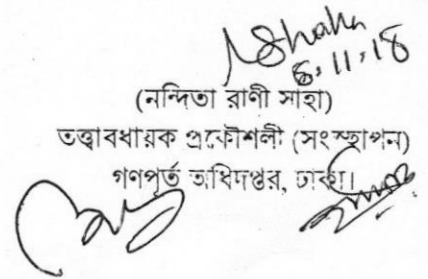 6.11.18
(নন্দিতা রাণী সাহা)
তত্ত্বাবধায়ক প্রকৌশলী (সংস্থাপন)
গণপূর্ত অধিদপ্তর, ঢাকা।